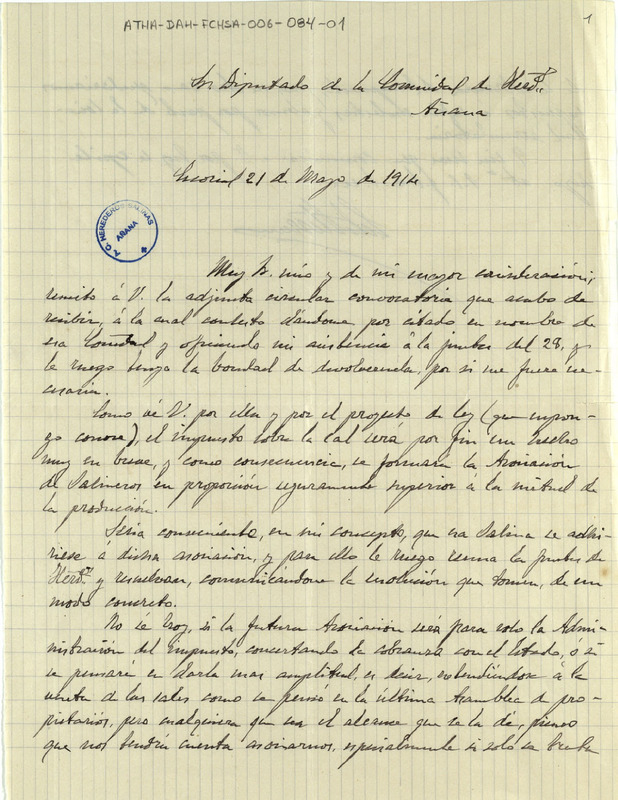 ATHA-DAH-FCHSA-006-084-01
1
Sr Diputado de la Comunidad de Hered.s
Añana
Escorial 21 de Mayo de 1914
A. C. HEREDEROS SALINAS
AÑANA
Muy Sr. mio y de mi mayor consideración;
remito á V. la adjunta circular convocatoria que acabo de
recibir, á la cual contesto dándome por citado en nombre de
esa Comunidad y ofreciendo mi asistencia á la junta del 28, y
le ruego tenga la bondad de devolvermela, por si me fuere ne-
cesaria.
Como vé V. por ella y por el proyecto de ley (que supon-
go conoce), el impuesto sobre la sal será por fin un hecho
muy en breve, y como consecuencia, se formará la Asociación
de Salineros en proporción seguramente superior a la mitad de
la producción.
Seria conveniente, en mi concepto, que esa Salina se adhi-
riese á dicha asociación, y para ello le ruego reuna la Junta de
Hered.s y resuelvan, comunicándome la resolución que tomen, de un
modo concreto.
No se hoy, si la futura Asociación será para solo la Admi-
nistración del impuesto, concertando la cobranza con el Estado, o si
se pensará en darla mas amplitud, es decir, estendiendose á la
venta de las sales como se pensó en la última Asamblea de pro-
pietarios, pero cualquiera que sea el alcance que se la dé, pienso
que nos tendria cuenta asociarnos, especialmente si solo se trata